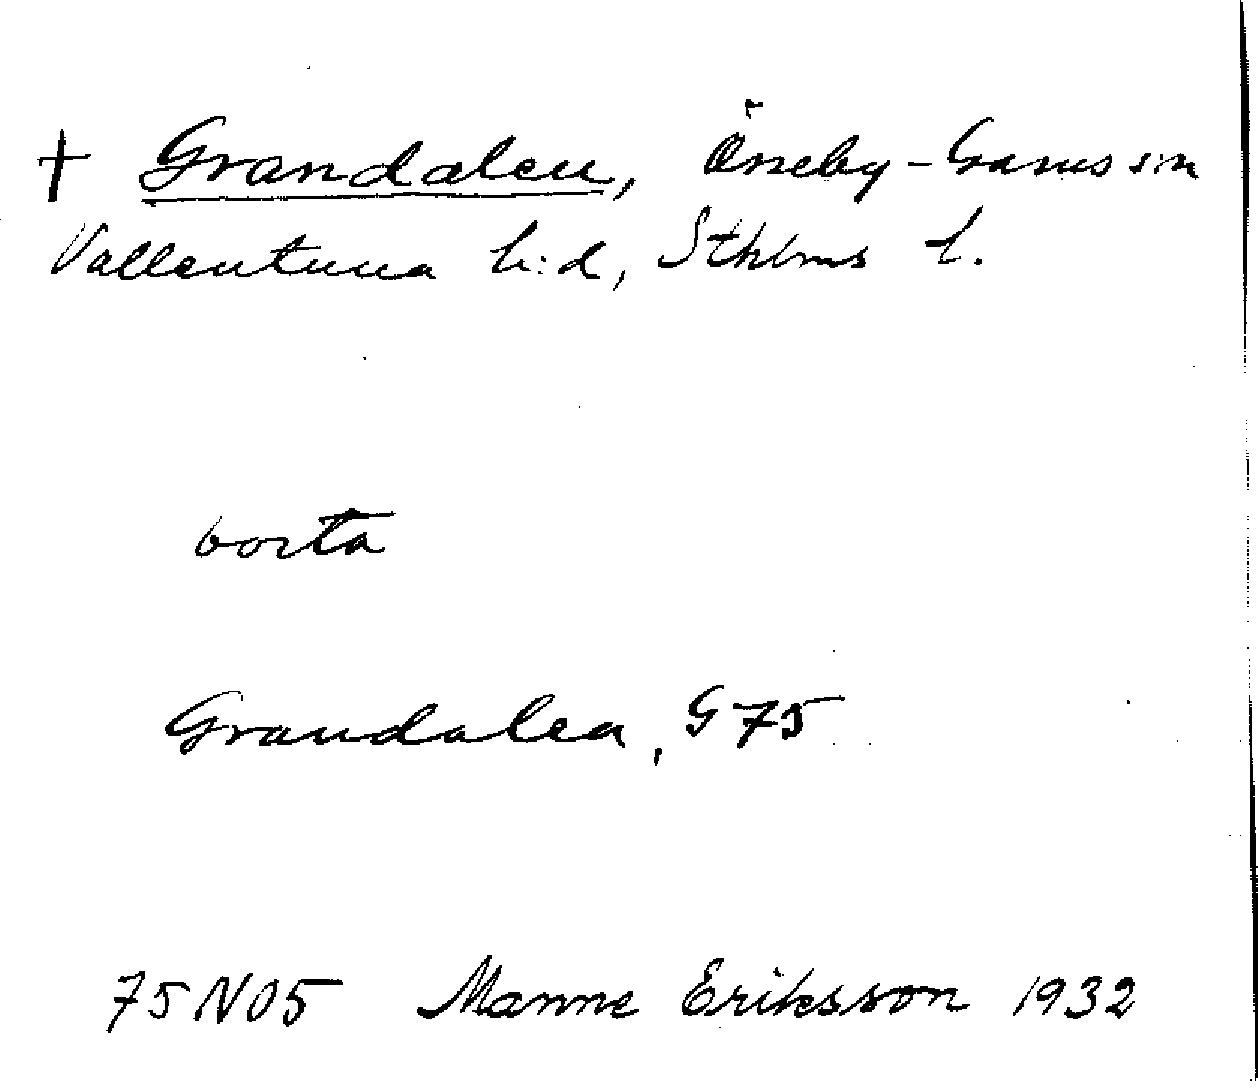 † Grandalen, Össeby-Garns sn
Vallentuna h:d, Sthlms l.
borta
Grandalen, G 75
75 NO5 Manne Eriksson 1932